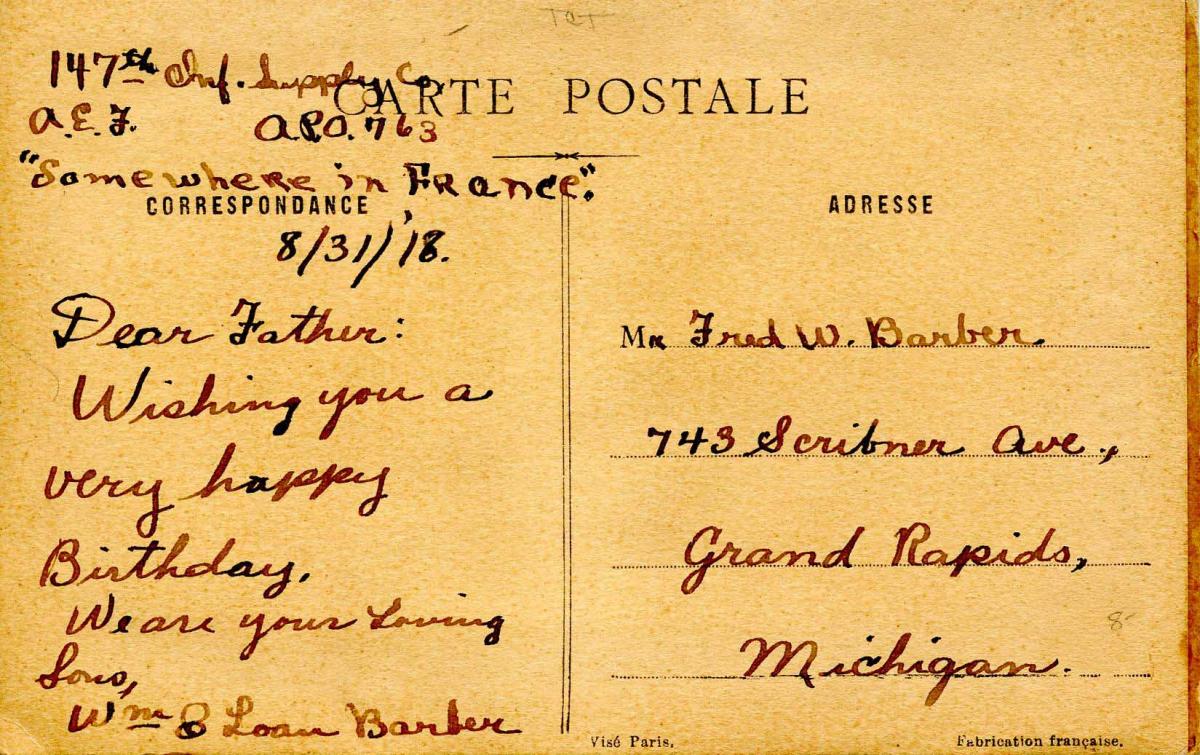 147th Inf. Supply Co.
CARTE POSTALE
A.E.F. A.P.O. 763
"Somewhere in France".
CORRESPONDANCE
8/31/18.
Dear Father:
Wishing you a
very happy
Birthday.
We are your Loving
Sons,
Wm & Loan Barber
ADRESSE
Mr Fred W. Barber
743 Scribner Ave.,
Grand Rapids,
Michigan.
8-
Visé Paris.
Fabrication française.